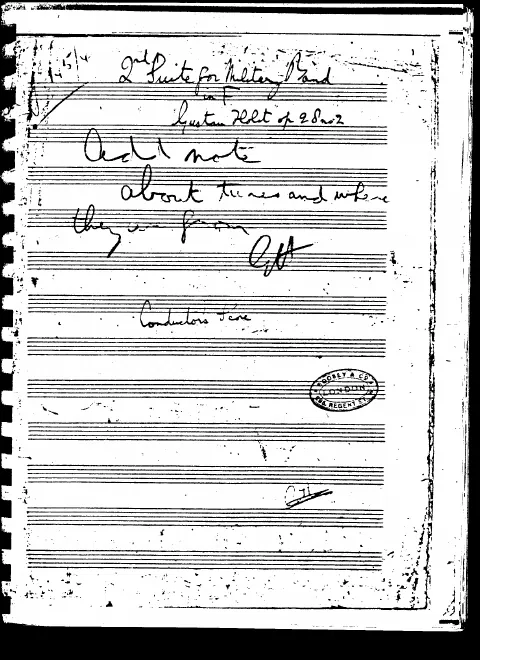 2nd Suite for Military Band
in F
Gustav Holst op 28 no 2
Add note
about tunes and where
they are from
GH
Conductors Score
BOOSEY & CO
LONDON
295, REGENT ST.